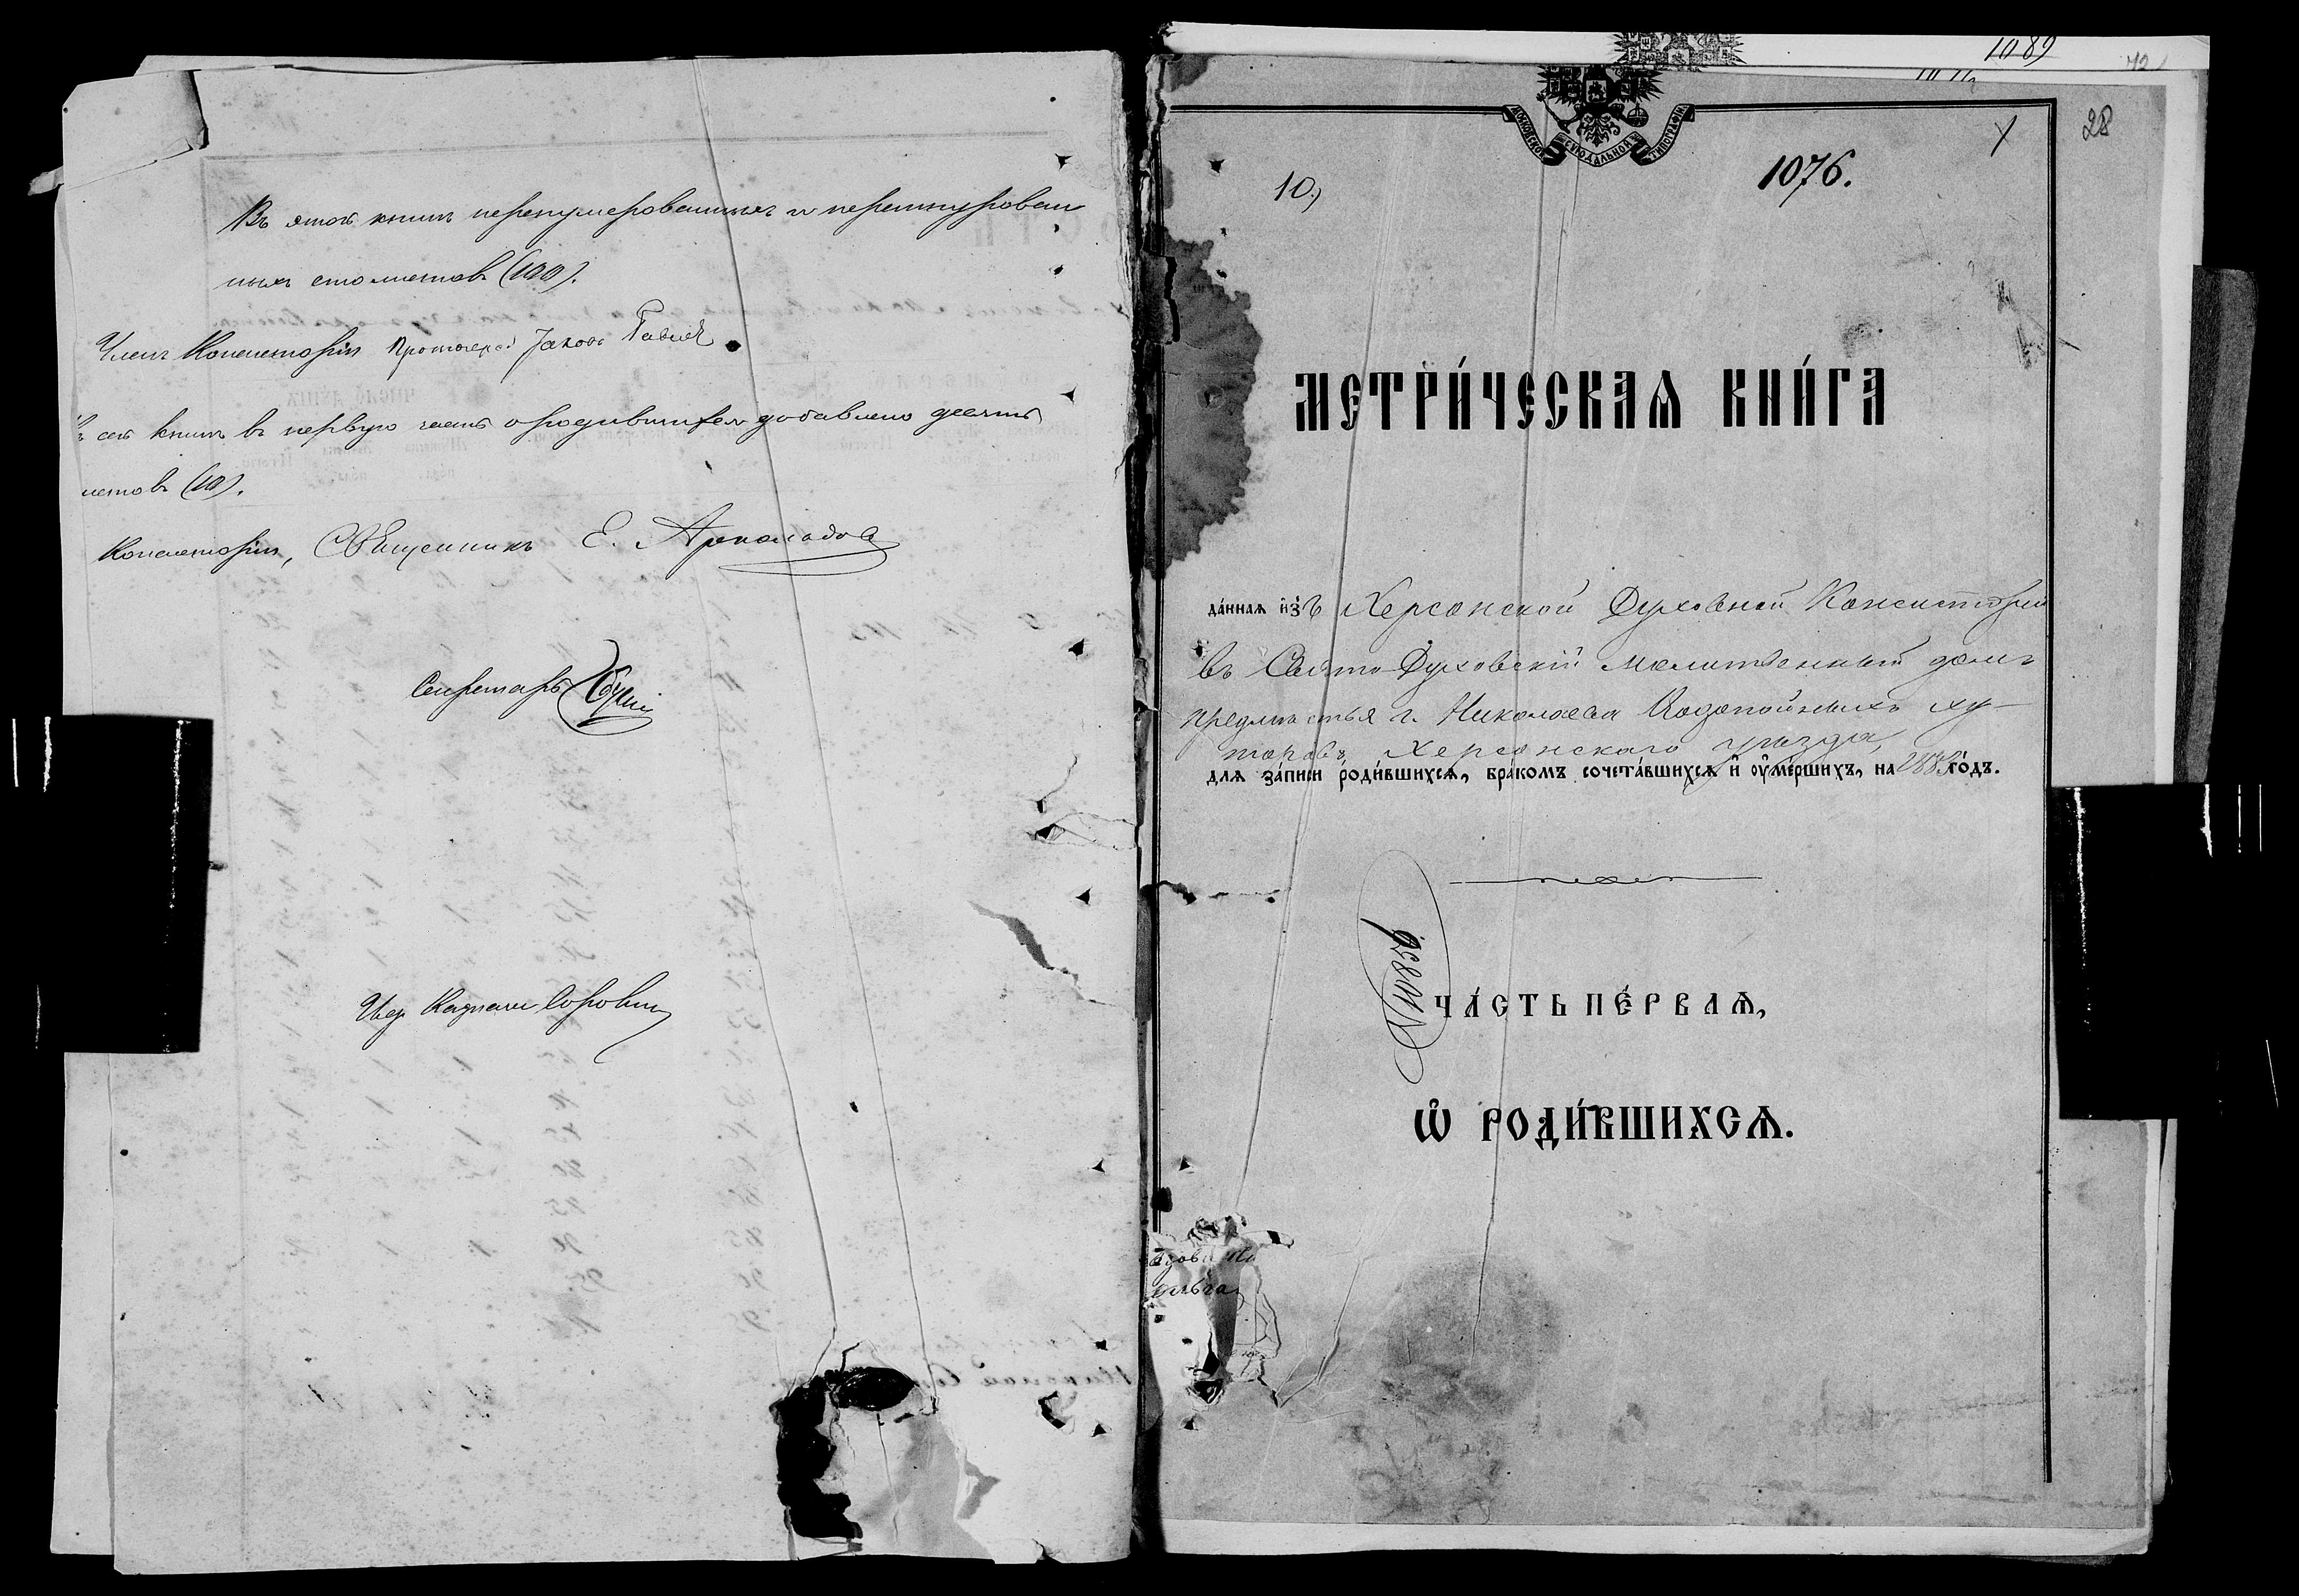 Въ этой книгѣ перенумерованныхъ и перешнурован
ныхъ сто листовъ (100).
Членъ Консисторіи Протоіерей Іаковъ
сей книгѣ въ первую часть о родившихся добавлено десять
листовъ (10).
Консисторіи, Священникъ Е.
Секретарь
1089
28
МОСКОВСКОЙ СѴНОДАЛЬНОЙ ТИПОГРАФІИ
10.) 1076.
МЕТРИ́ЧЕСКАѦ КНИ́ГА
да́ннаѧ и҆зъ Херсонской Духовной Консисторіи
въ Свято-Духовскій молитвенный домъ
предмѣстья г. Николаева Водопойныхъ ху-
торовъ, Херсонскаго уѣзда,
для за́писи роди́вшихсѧ, бра́комъ сочета́вшихсѧ и҆ ᲂу҆ме́ршихъ, на го́дъ.
№ 10856.
ЧА́СТЬ ПЕ́РВАѦ,
Ѡ҆ РОДИ́ВШИХСѦ.